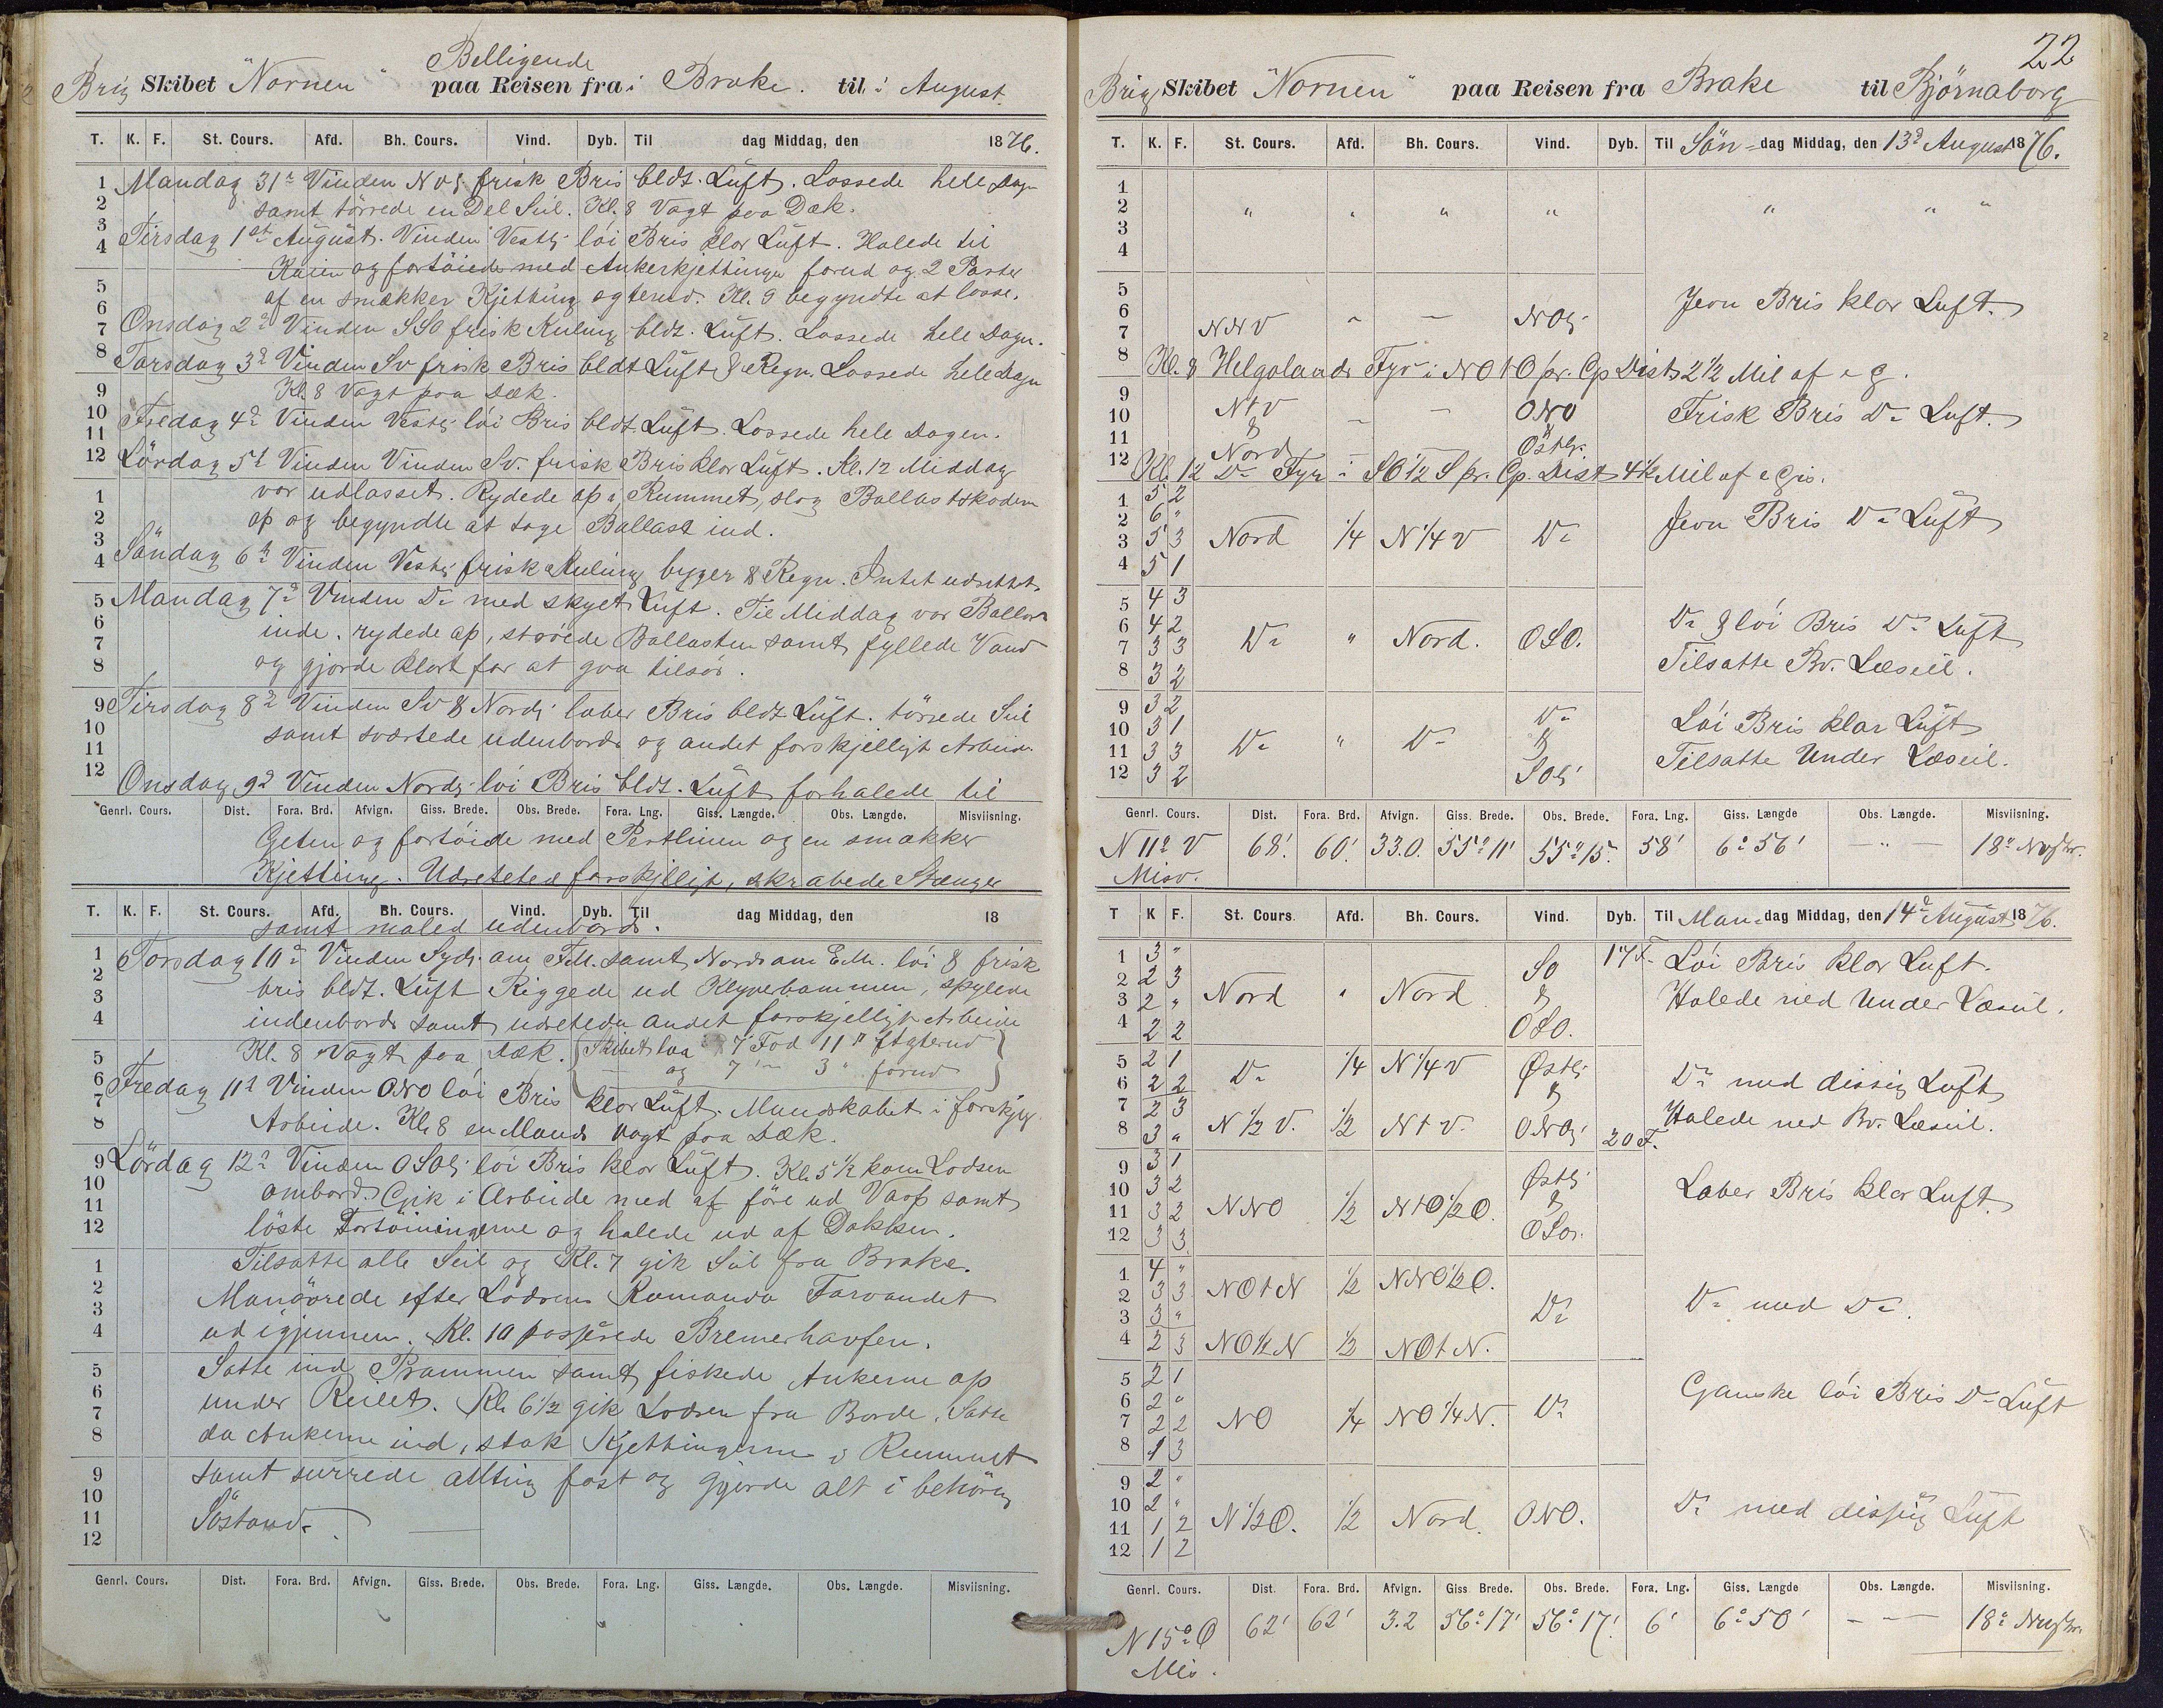 Belligende
Brig Skibet "Nornen" paa Reisen fra i Brake. til i August
T. K. F. St. Cours. Afd. Bh. Cours. Vind. Dyb. Til dag Middag, den 1876.
Mandag 31te Vinden NVlg frisk Bris bldt. Luft. Lossede hele Dagen
samt törrede en Del Seil. Kl. 8 Vagt paa Dæk.
Tirsdag 1ste August. Vinden Vestlig löi Bris klar Luft. Halede til
Kaien og fortöiede med Ankerkjettinger forud og 2 Parter
af en smækker Kjetting agterud. Kl. 9 begyndte at losse.
Onsdag 2d Vinden SSO frisk Kuling bldt. Luft. Lossede hele Dagen.
Torsdag 3d Vinden Sv frisk Bris bldt Luft & Regn. Lossede hele Dagen
Kl. 8 Vagt paa Dæk.
Fredag 4d Vinden Vestlig löi Bris bldt. Luft. Lossede hele Dagen.
Lördag 5t Vinden Vinden Sv. frisk Bris klar Luft. Kl. 12 Middag
var udlasset. Rydede op i Rummet, slog Ballastskoden
op og begyndte at tage Ballast ind.
Söndag 6t Vinden Vestlig frisk Kuling byger & Regn. Intet udrettet.
Mandag 7d Vinden Do med skyet Luft. Til Middag var Ballast
inde. rydede op, ströiede Ballasten samt fyllede Vand
og gjorde klart for at gaa tilsös.
Tirsdag 8d Vinden Sv & Nordlig laber Bris bldt Luft. törrede Seil
samt sværtede udenbords og andet forskjelligt Arbeide.
Onsdag 9d Vinden Nordlig löi Bris bldt. Luft forhalede til
Genrl. Cours. Dist. Fora. Brd. Afvign. Giss. Brede. Obs. Brede. Fora. Lng. Giss. Længde. Obs. Længde. Misviisning.
Geten og fortöide med Pertlinen og en smakker
Kjetting. Udrettede forskjelligt, skrabede Stænger
T. K. F. St. Cours. Afd. Bh. Cours. Vind. Dyb. Til dag Middag, den 18
samt maled udenbords.
Torsdag 10d Vinden Sydlig om F.M. samt Nords om E.M. löi & frisk
bris bldt. Luft Riggede ud Klyverbommen, spylede
indenbords samt udrettede andet forskjelligt Arbeide
Kl. 8 Vagt paa Dæk. {Skibet laa 7 Fod 11" agterud
og 7 " 3 " forud}
Fredag 11t Vinden ONO löi Bris klar Luft. Mandskabet i forskjlg
Arbeide. Kl. 8 en Mands Vagt paa Dæk.
Lördag 12d Vinden OSOlig löi Bris klar Luft. Kl. 5 1/2 kom Lodsen
ombord. Gik i Arbeide med at före ud Varp samt
löste Fortöiningerne og halede ud af Dokken.
Tilsatte alle Seil og Kl. 7 gik Seil fra Brake.
Manövrede efter Lodsens Komando Farvandet
ud igjennem. Kl. 10 passerede Bremerhavfen.
Satte ind Prammen samt fiskede Ankerne op
under Reilet. Kl. 6 1/2 gik Lodsen fra Borde. Satte
da Ankerne ind, stak Kjettingerne i Rummet
samt surrede allting fast og gjorde alt i behörig
Söstand.
Genrl. Cours. Dist. Fora. Brd. Afvign. Giss. Brede. Obs. Brede. Fora. Lng. Giss. Længde. Obs. Længde. Misviisning.
22
Brig Skibet "Nornen" paa Reisen fra Brake til Björnaborg
T. K. F. St. Cours. Afd. Bh. Cours. Vind. Dyb. Til Sön-dag Middag, den 13d August 1876.
1
2 " " " " " " "
3
4
5
6 NNV " — NOlig Jevn Bris klar Luft.
7
8 Kl. 8 Helgolands Fyr i NOtO pr. Cp Dist 2 1/2 Mil af e g.
9
10 NtV — — ONO Frisk Bris Do Luft.
11 & &
12 Nord Östlig
Kl. 12 Do Fyr i SO 1/2 S pr. Cp. Dist 4 1/2 Mil af e gis.
1 5 2
2 6 " Jevn Bris Do Luft
3 5 3 Nord 1/4 N 1/4 V Do
4 5 1
5 4 3
6 4 2 Do & löi Bris Do Luft
7 3 3 Do " Nord. OSO.
8 3 2 Tilsatte Bv. Læseil.
9 3 2
10 3 1 Do Löi Bris klar Luft
11 3 3 Do " Do &
12 3 2 SOlig Tilsatte Under Læseil.
Genrl. Cours. Dist. Fora. Brd. Afvign. Giss. Brede. Obs. Brede. Fora. Lng. Giss. Længde Obs. Længde. Misviisning.
N 11° V 68' 60'. 33.0. 55° 11' 55° 15'. 58' 6° 56' — " — 18°
Misv.
T K F. St. Cours. Afd. Bh. Cours. Vind. Dyb. Til Man-dag Middag, den 14d August 1876.
1 3 " SO 17 F. Löi Bris klar Luft.
2 2 3 &
3 2 " Nord " Nord Halede ned Under Læseil.
4 2 2 OSO.
5 2 1 Do 1/4 N 1/4 V Östlig
6 2 2 & Do med dissig Luft
7 2 3
8 3 " N 1/2 V. 1/2 NtV. ONOlig 20 F. Halede ned Bv. Læseil.
9 3 1 Östlig
10 3 2 & Laber Bris klar Luft
11 3 2 NNO 1/2 NtO 1/2 O.
12 3 3 OSO.
1 4 "
2 3 3 NOtN 1/2 NNO 1/2 O.
3 3 " Do Do med Do.
4 2 3 NO 1/2 N 1/2 NOtN.
5 2 1
6 2 " Ganske löi Bris Do Luft
7 2 2 NO 1/4 NO 1/4 N. Do
8 1 3
9 2 "
10 2 " Do med dissig Luft
11 1 2 N 1/2 O. 1/2 Nord. ONO.
12 1 2
Genrl. Cours. Dist. Fora. Brd. Afvign. Giss Brede. Obs. Brede. Fora. Lng. Giss. Længde Obs. Længde. Misviisning.
N 15° O 62' 62' 3.2 56° 17' 56° 17'. 6' 6° 50' — " — 18°
Mis.